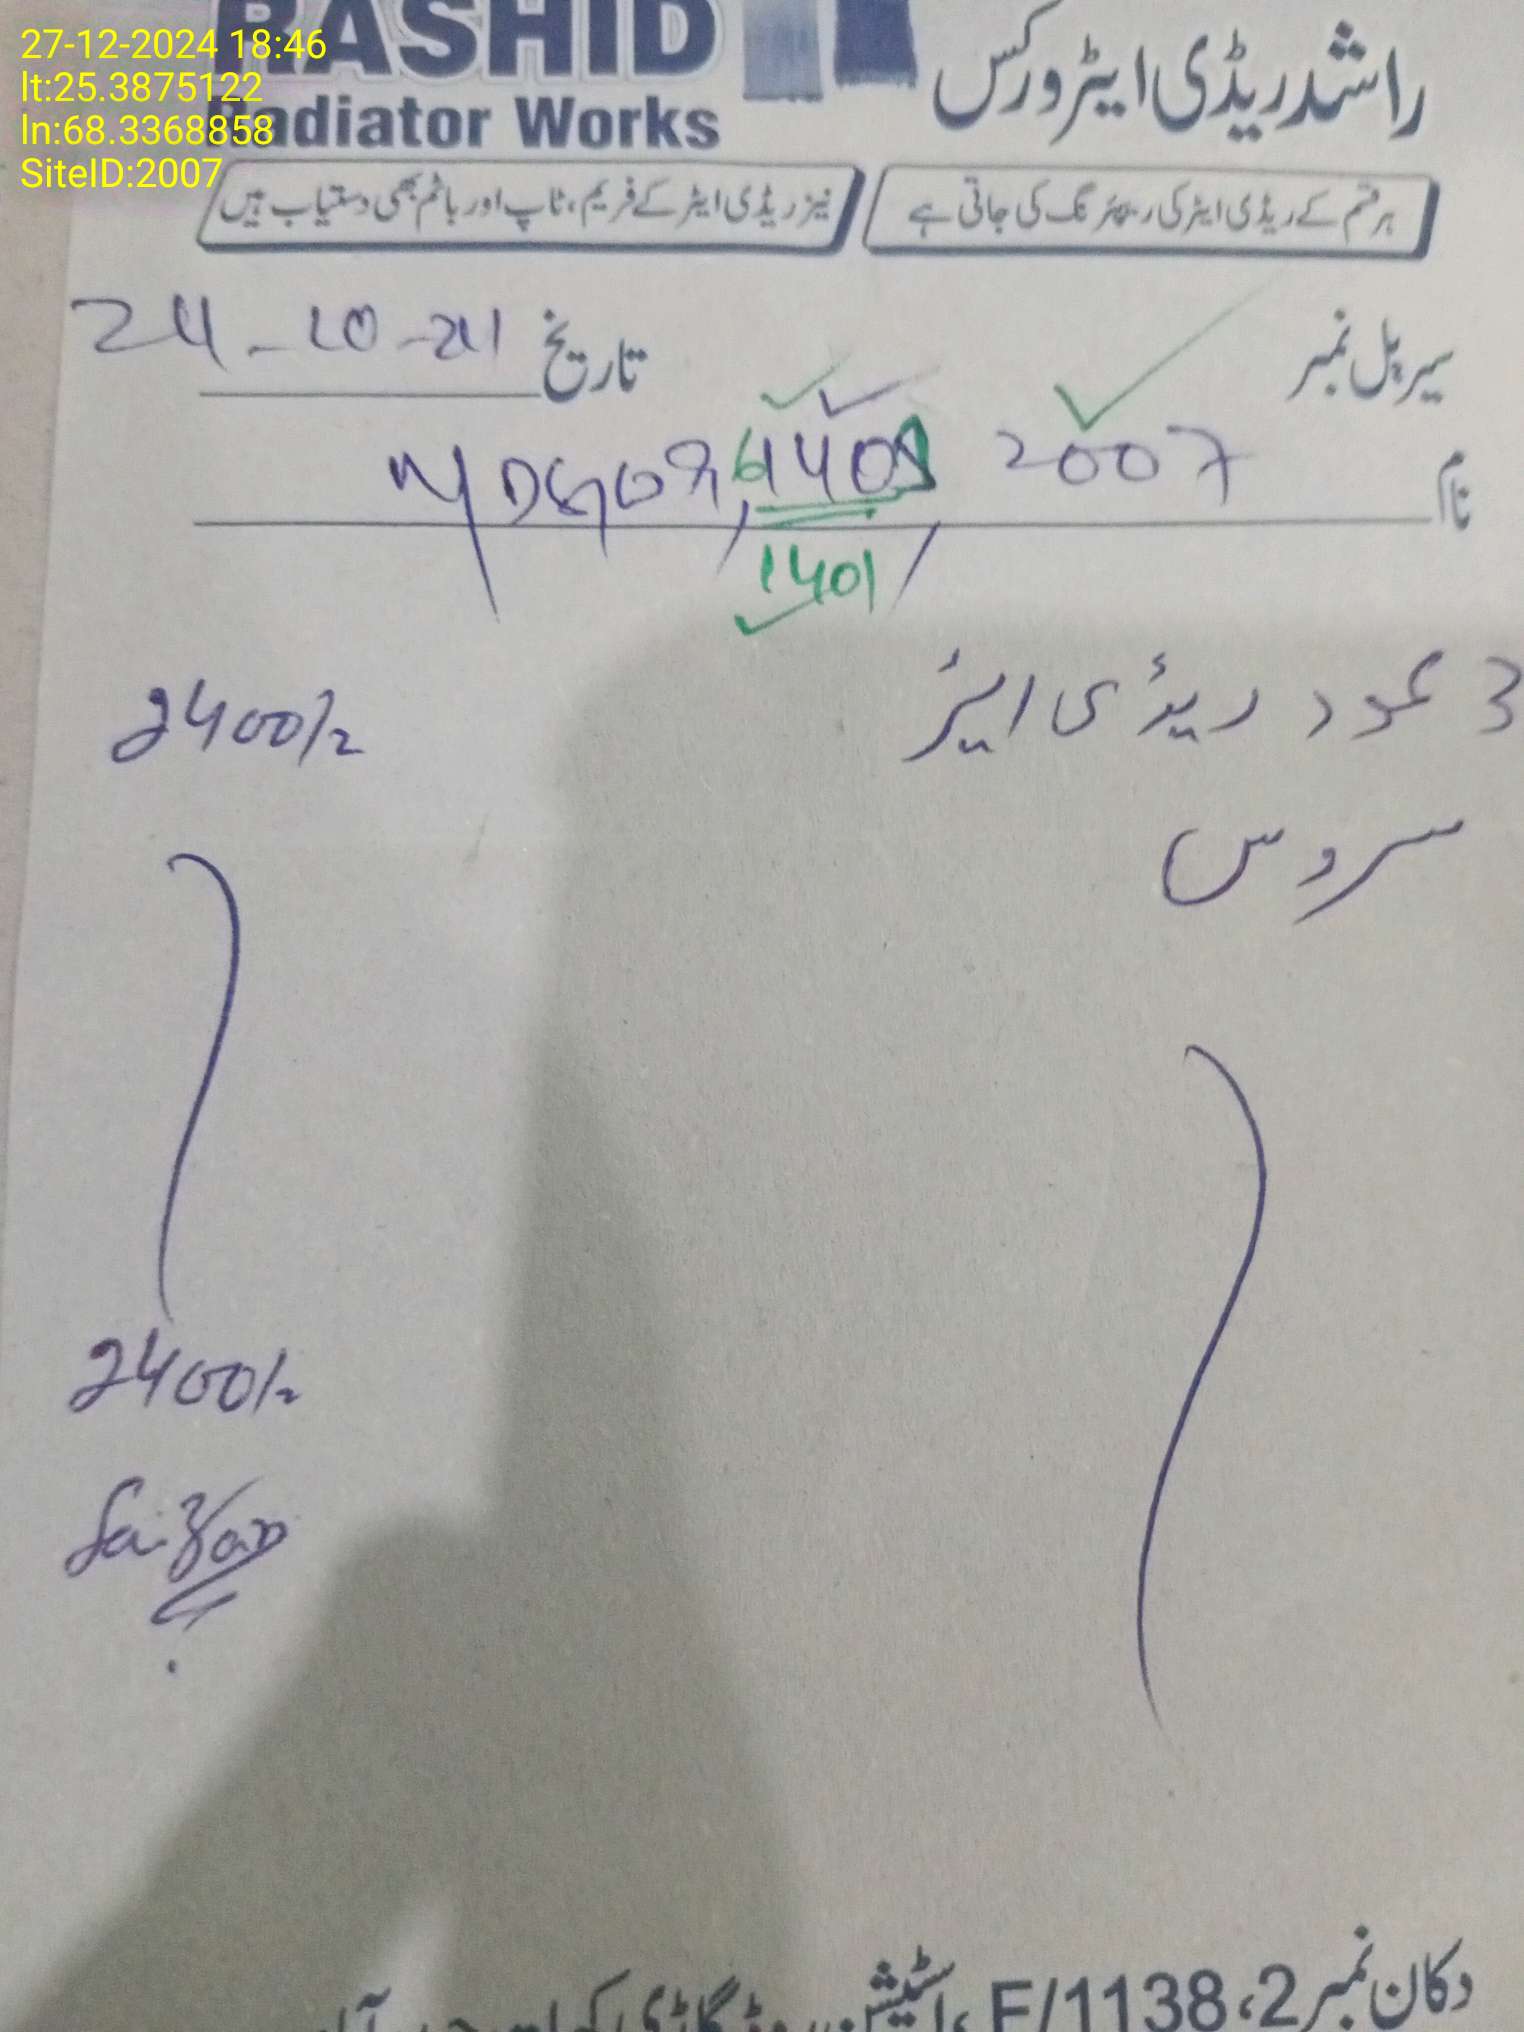 27-12-2024 18:46
lt:25.3875122
ln:68.3368858
SiteID:2007
RASHID
Radiator Works
راشد ریڈی ایٹر ورکس
ہر قسم کے ریڈی ایٹر کی رپیئرنگ کی جاتی ہے
نیز ریڈی ایٹر کے فریم، ٹاپ اور باٹم بھی دستیاب ہیں
سیریل نمبر
تاریخ 24-10-24
نام 2007
1401
3 عدد ریڈی ایٹر 2400/-
سروس
2400/-
دکان نمبر 2، F/1138، اسٹیشن روڈ گاڑی کھاتہ